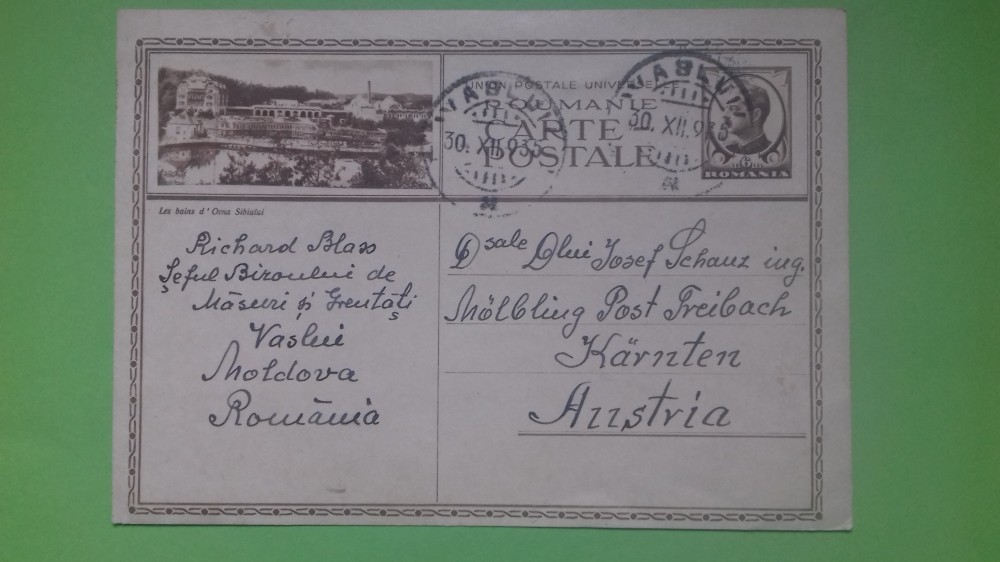 UNION POSTALE UNIVERSELLE
ROUMANIE
CARTE
POSTALE
VASLUI
30. XII. 935
VASLUI
30. XII. 935
6
ROMANIA
Les bains d'Ocna Sibiului
Richard Blass
Șeful Biroului de
Măsuri și Greutăți
Vaslui
Moldova
România
Dsale Dlui Josef Schanz ing.
Mölbling Post Treibach
Kärnten
Austria